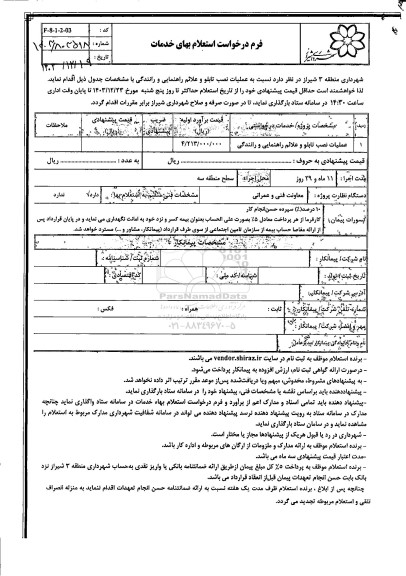 کد : F-8-1-2-03
فرم درخواست استعلام بهای خدمات
شماره :
تاریخ :
شهرداری منطقه ۳ شیراز در نظر دارد نسبت به عملیات نصب تابلو و علائم راهنمایی و رانندگی با مشخصات جدول ذیل اقدام نماید.
لذا خواهشمند است حداقل قیمت پیشنهادی خود را از تاریخ استعلام حداکثر تا روز پنج شنبه مورخ ۱۴۰۳/۱۲/۲۳ تا پایان وقت اداری
ساعت ۱۴:۳۰ در سامانه ستاد بارگذاری نماید، تا در صورت صرفه و صلاح شهرداری شیراز برابر مقررات اقدام گردد.
ردیف مشخصات پروژه/ خدمات درخواستی قیمت برآورد اولیه (ریال) ضریب پیشنهادی قیمت پیشنهادی ملاحظات
۱ عملیات نصب تابلو و علائم راهنمایی و رانندگی ۴/۲۱۳/۰۰۰/۰۰۰
قیمت پیشنهادی به حروف : ریال به عدد : ریال
مدت اجرا: ۱۱ ماه و ۲۹ روز محل اجرا: سطح منطقه سه
دستگاه نظارت پروژه : معاونت فنی و عمرانی مشخصات فنی منضم به استعلام بها: دارد ندارد
کسورات پیمان:
۱۰ درصد(٪) سپرده حسن انجام کار
کارفرما از هر پرداخت معادل ۵٪ بصورت علی الحساب بعنوان بیمه کسر و نزد خود به امانت نگهداری می نماید و در پایان قرارداد پس
از ارائه مفاصا حساب بیمه از سازمان تامین اجتماعی از سوی طرف قرارداد (پیمانکار، مشاور و ...) مسترد خواهد شد.
مشخصات پیمانکار
نام شرکت/ پیمانکار: شماره ثبت / شناسنامه :
تاریخ ثبت/ تولد : شناسه/ کد ملی : کد اقتصادی :
آدرس شرکت/ پیمانکار:
شماره تلفن شرکت/ پیمانکار: ثابت : همراه : فکس :
مهر و امضاء شرکت/ پیمانکار:
ParsNamadData
۰۲۱-۸۸۳۴۹۶۷۰-۵
- برنده استعلام موظف به ثبت نام در سایت vendor.shiraz.ir می باشند.
- درصورت ارائه گواهی ثبت نام، ارزش افزوده به پیمانکار پرداخت می‌شود.
- به پیشنهادهای مشروط، مخدوش، مبهم ویا دریافت‌شده پس‌از موعد مقرر ترتیب اثر داده نخواهد شد.
- پیشنهاددهنده باید براساس نقشه یا مشخصات فنی، پیشنهاد خود را در سامانه ستاد بارگذاری نماید.
-پیشنهاد دهنده باید تمامی اسناد و مدارک اعم از برآورد و فرم درخواست استعلام بهاء خدمات در سامانه ستاد بارگذاری نماید چنانچه
مدارک در سامانه ستاد به رویت پیشنهاد دهنده نرسد پیشنهاد دهنده می تواند در سامانه شفافیت شهرداری مدارک مربوط به استعلام را
مشاهده نماید و در سامان ستاد بارگذاری نماید.
- شهرداری در رد یا قبول هریک از پیشنهادها مجاز یا مختار است.
- برنده استعلام موظف به ارائه مدارک و ملزومات از ارگان های مربوطه و اداره کار باشد.
-مدت اعتبار قیمت پیشنهادی سه ماه می باشد.
- برنده استعلام موظف به پرداخت ۵٪ کل مبلغ پیمان ازطریق ارائه ضمانتنامه بانکی یا واریز نقدی به‌حساب شهرداری منطقه ۳ شیراز نزد
بانک بابت حسن انجام تعهدات پیمان قبل‌از انعقاد قرارداد می باشد.
چنانچه پس از ابلاغ ، برنده استعلام ظرف مدت یک هفته نسبت به ارائه ضمانتنامه حسن انجام تعهدات اقدام ننماید به منزله انصراف
تلقی و استعلام مربوطه تجدید می گردد.